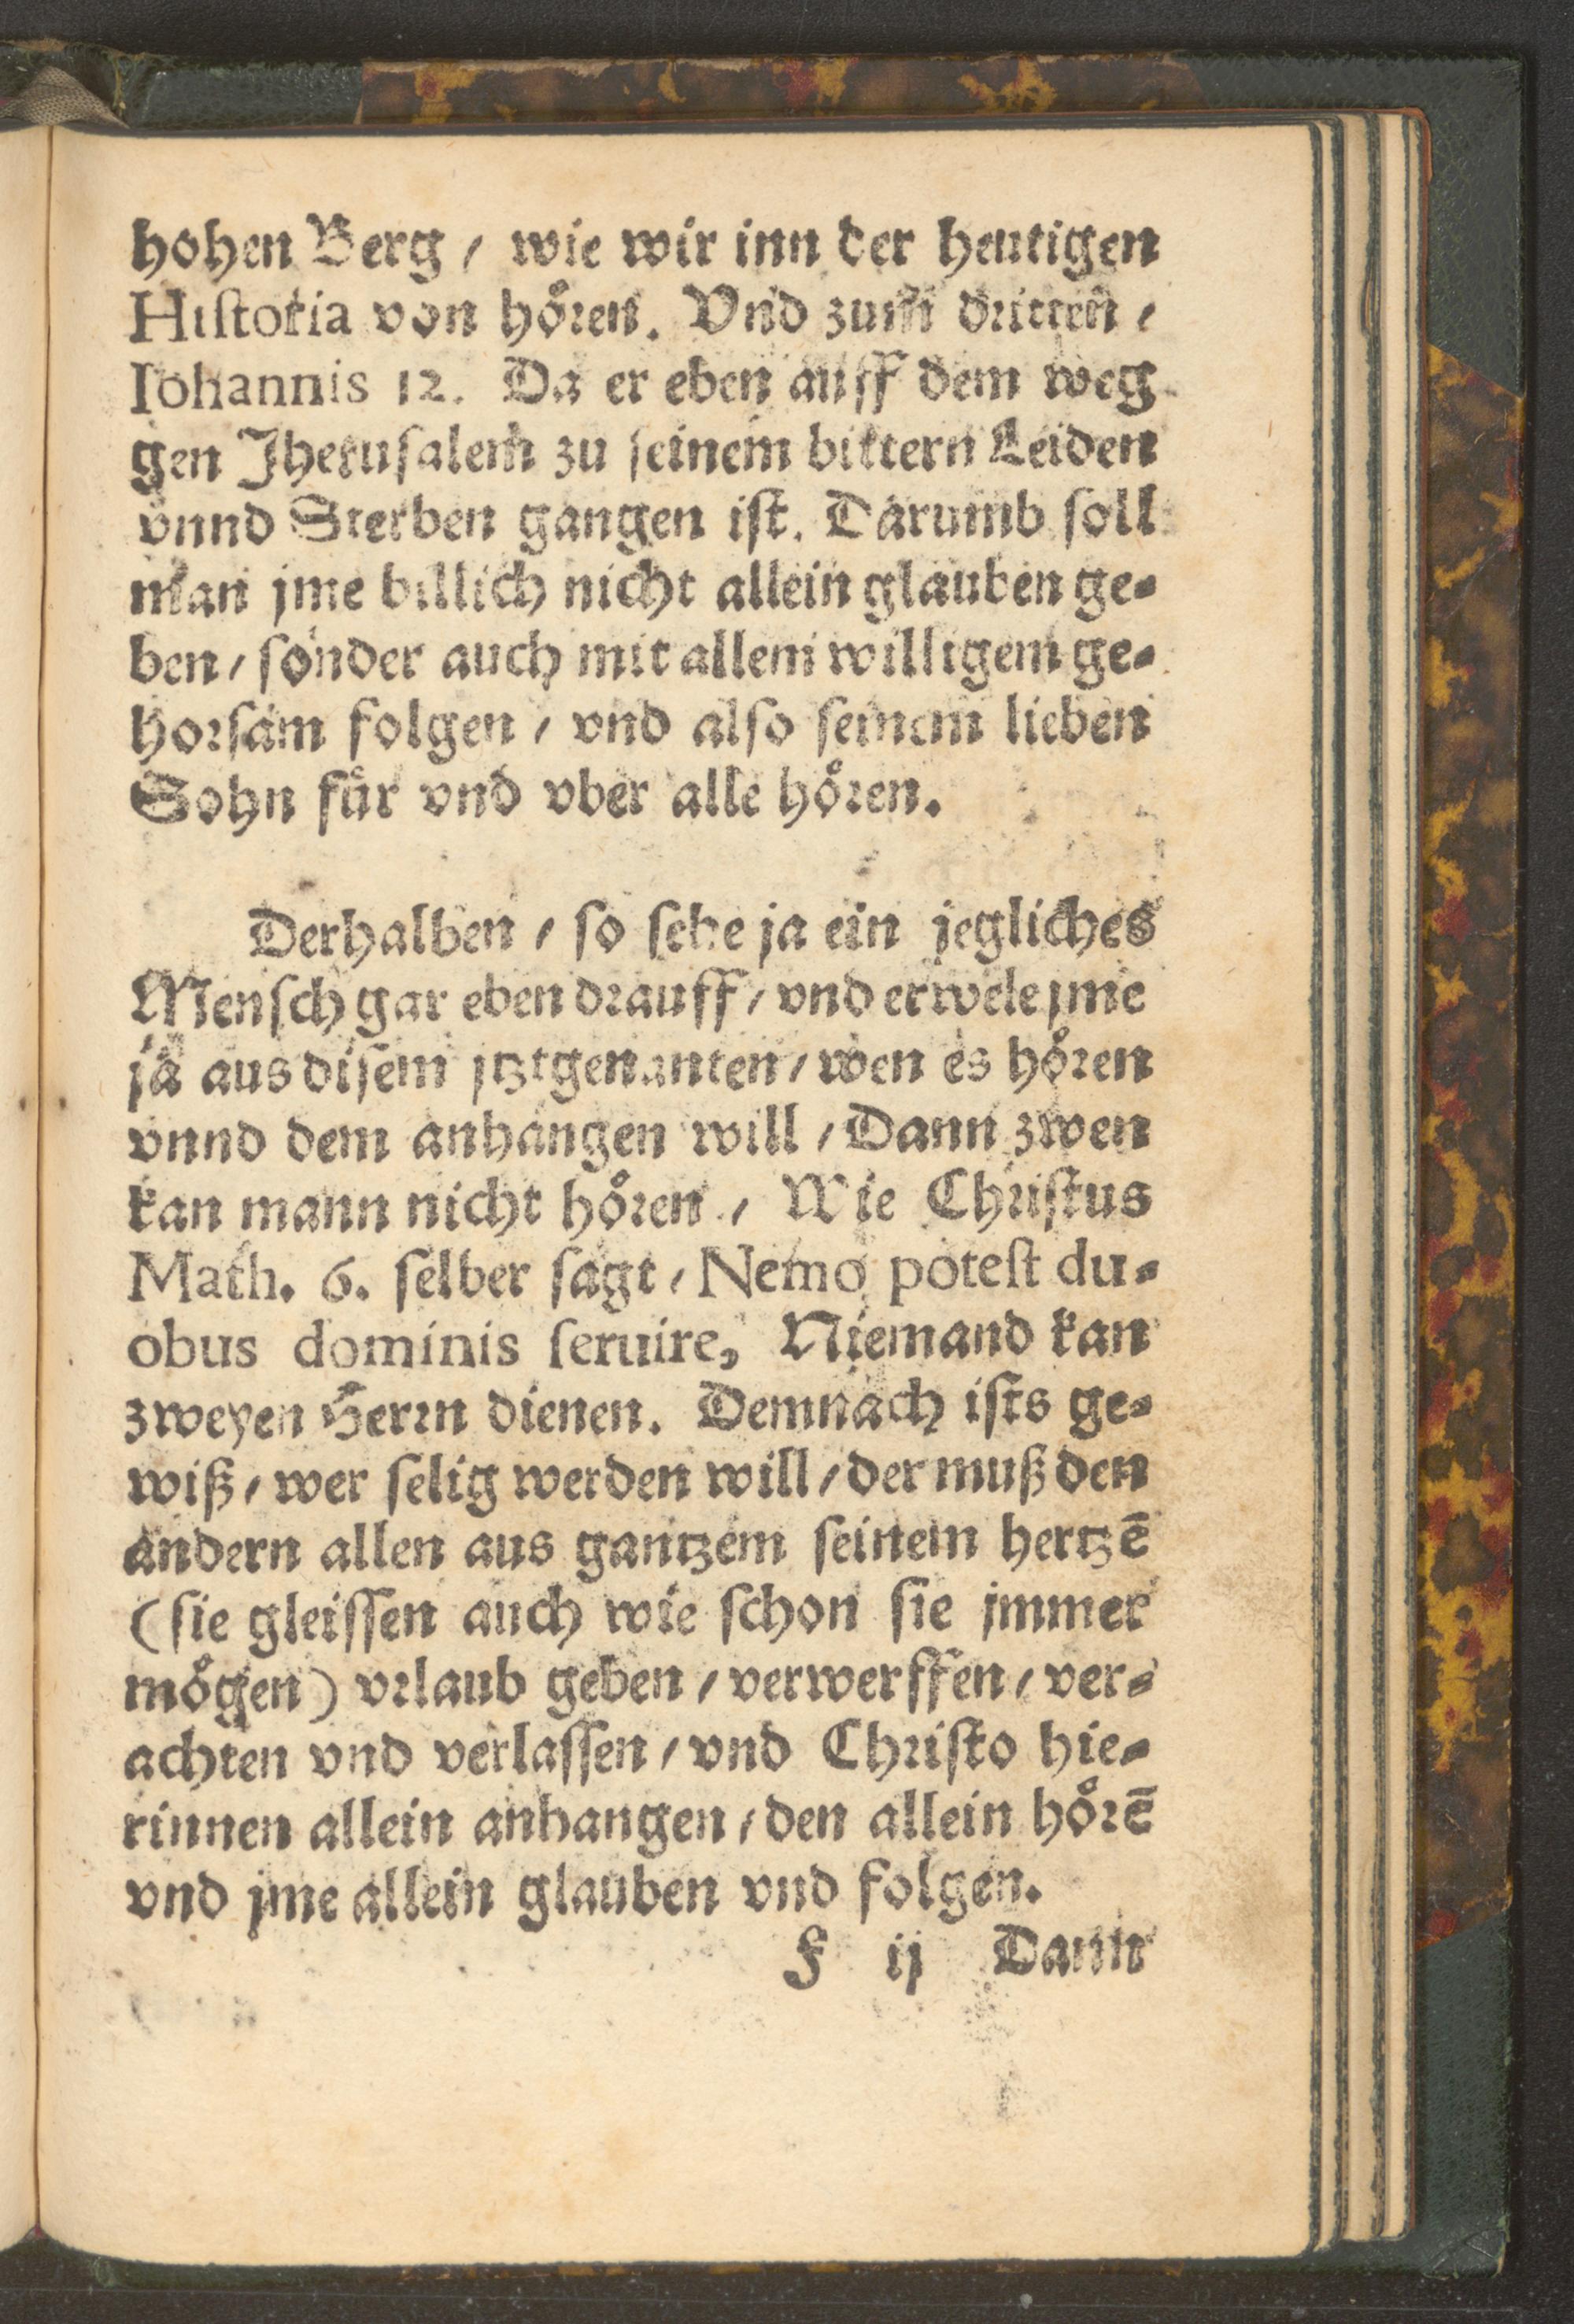 hohen Berg / wie wir inn der heutigen
Hiſtoria von hoͤꝛen. Vnd zum dꝛitten /
Iohannis 12. Da er eben auff dem weg
gen Jheruſalem zu ſeinem bittern Leiden
vnnd Sterben gangen iſt. Darumb ſoll
man jme billich nicht allein glauben ge⸗
ben / ſonder auch mit allem willigem ge⸗
hoꝛſam folgen / vnd alſo ſeinem lieben
Sohn fuͤr vnd vber alle hoͤꝛen.
Derhalben / ſo ſehe ja ein jegliches
Menſch gar eben dꝛauff / vnd erwele jme
ja aus diſem jtztgenanten / wen es hoͤꝛen
vnnd dem anhangen will / Dann zwen
kan mann nicht hoͤꝛen / Wie Chꝛiſtus
Math. 6. ſelber ſagt / Nemo poteſt du⸗
obus dominis ſeruire, Niemand kan
zweyen Herꝛn dienen. Demnach iſts ge⸗
wiß / wer ſelig werden will / der muß den
andern allen aus gantzem ſeinem hertzē
(ſie gleiſſen auch wie ſchon ſie jmmer
moͤgen) vꝛlaub geben / verwerffen / ver⸗
achten vnd verlaſſen / vnd Chꝛiſto hie⸗
rinnen allein anhangen / den allein hoͤꝛē
vnd jme allein glauben vnd folgen.
F ij Dann